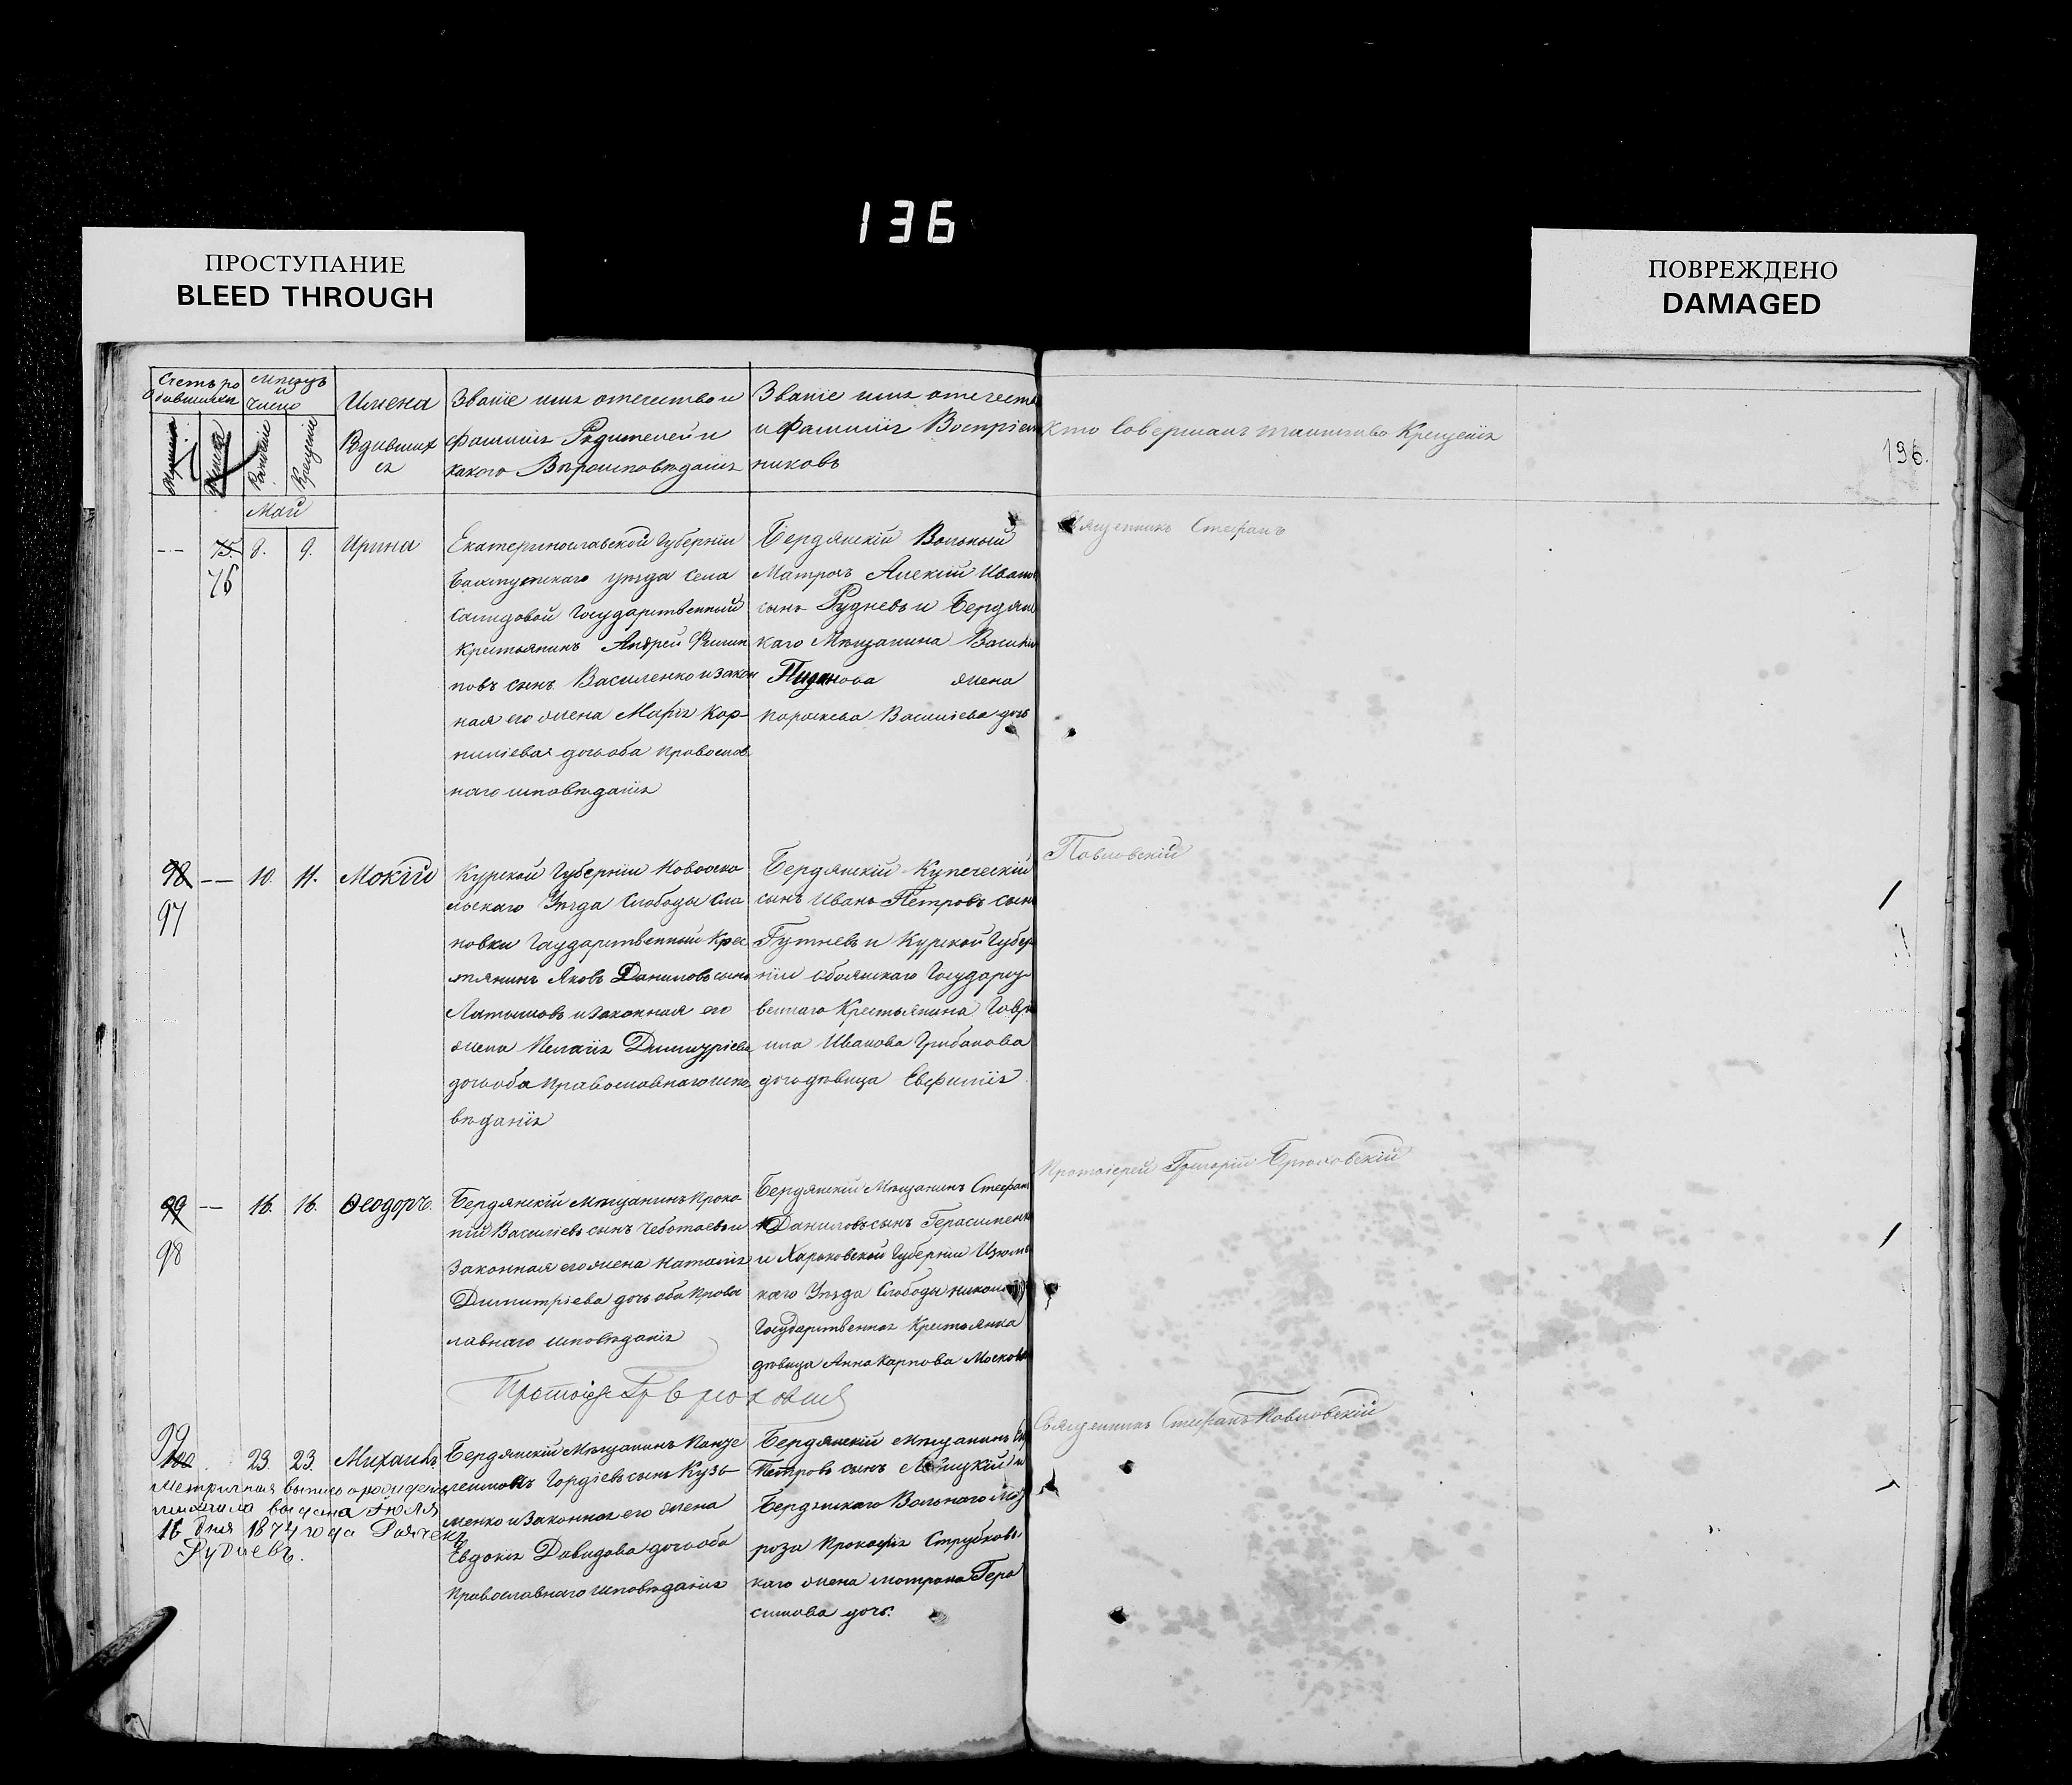 136
ПРОСТУПАНИЕ
BLEED THROUGH
ПОВРЕЖДЕНО
DAMAGED
196.
Счетъ ро
дившихся
Мѣсяцъ
и
число
Имена
Родивших
ся
Рожденія
Крещенія
Званіе имя отечество и
фамилія Родителей и
какого Вѣроисповѣданія
Званіе имя отечеств
и фамилія Воспріем
никовъ
Кто совершалъ таинство Крещенія
Май
75.
76
8.
9.
Ирина
Екатеринославской Губерніи
Бахмутскаго уѣзда села
Государственный
Крестьянинъ Андрей Филип
повъ сынъ Василенко и закон
ная его жена Марія Кор-
ниліевая дочь оба православ
наго исповѣданія
Бердянскій Вольный
Матрозъ Алексій Иванов
сынъ Рудневъ и Бердянс
каго Мѣщанина
жена
Параскева Василіева дочь
Священникъ Стефанъ
98
97
10.
11.
Мокій
Курской Губерніи Новооско
льскаго Уѣзда Слободы Сла
новки Государственный Крес
тянинъ Яковъ Даниловъ сынъ
Латышовъ и законная его
жена Пелагія Димитріева
дочь оба православнаго испо
вѣданія
Бердянскій Купеческій
сынъ Иванъ Петровъ сынъ
и Курской Губер
ніи Обоянскаго Государст
веннаго Крестьянина Гаври
ила Иванова Грибанова
дочь дѣвица Евфимія
Павловскій
99
98
16.
16.
Ѳеодоръ.
Бердянскій Мѣщанинъ Проко
пій Василіевъ сынъ Чеботаевъ и
Законная его жена Наталія
Димитріева дочь оба Правос
лавнаго исповѣданія
Бердянскій Мѣщанинъ Стефанъ
Даниловъ сынъ Герасименк
и Харьковской Губерніи Изюмс
каго Уѣзда Слободы
Государственная Крестьянка
дѣвица Анна Карпова
Протоіерей Григорій Брюховскій
99
100
23.
23.
Михаилъ
Бердянскій Мѣщанинъ Панте
леимонъ Гордіевъ сынъ Кузь-
менко и Законная его жена
Евдокія Давидова дочь оба
Православнаго исповѣданія
Бердянскій мѣщанинъ
Петровъ сынъ
Бердянскаго Вольнаго Мат
роза Прокофія
каго жена Матрона Гера
симова дочь.
Священникъ Стефанъ Павловскій
Метричная выпись о рожденіи
Михаила выдана Іюля
16 дня 1874 года
Рудневъ.